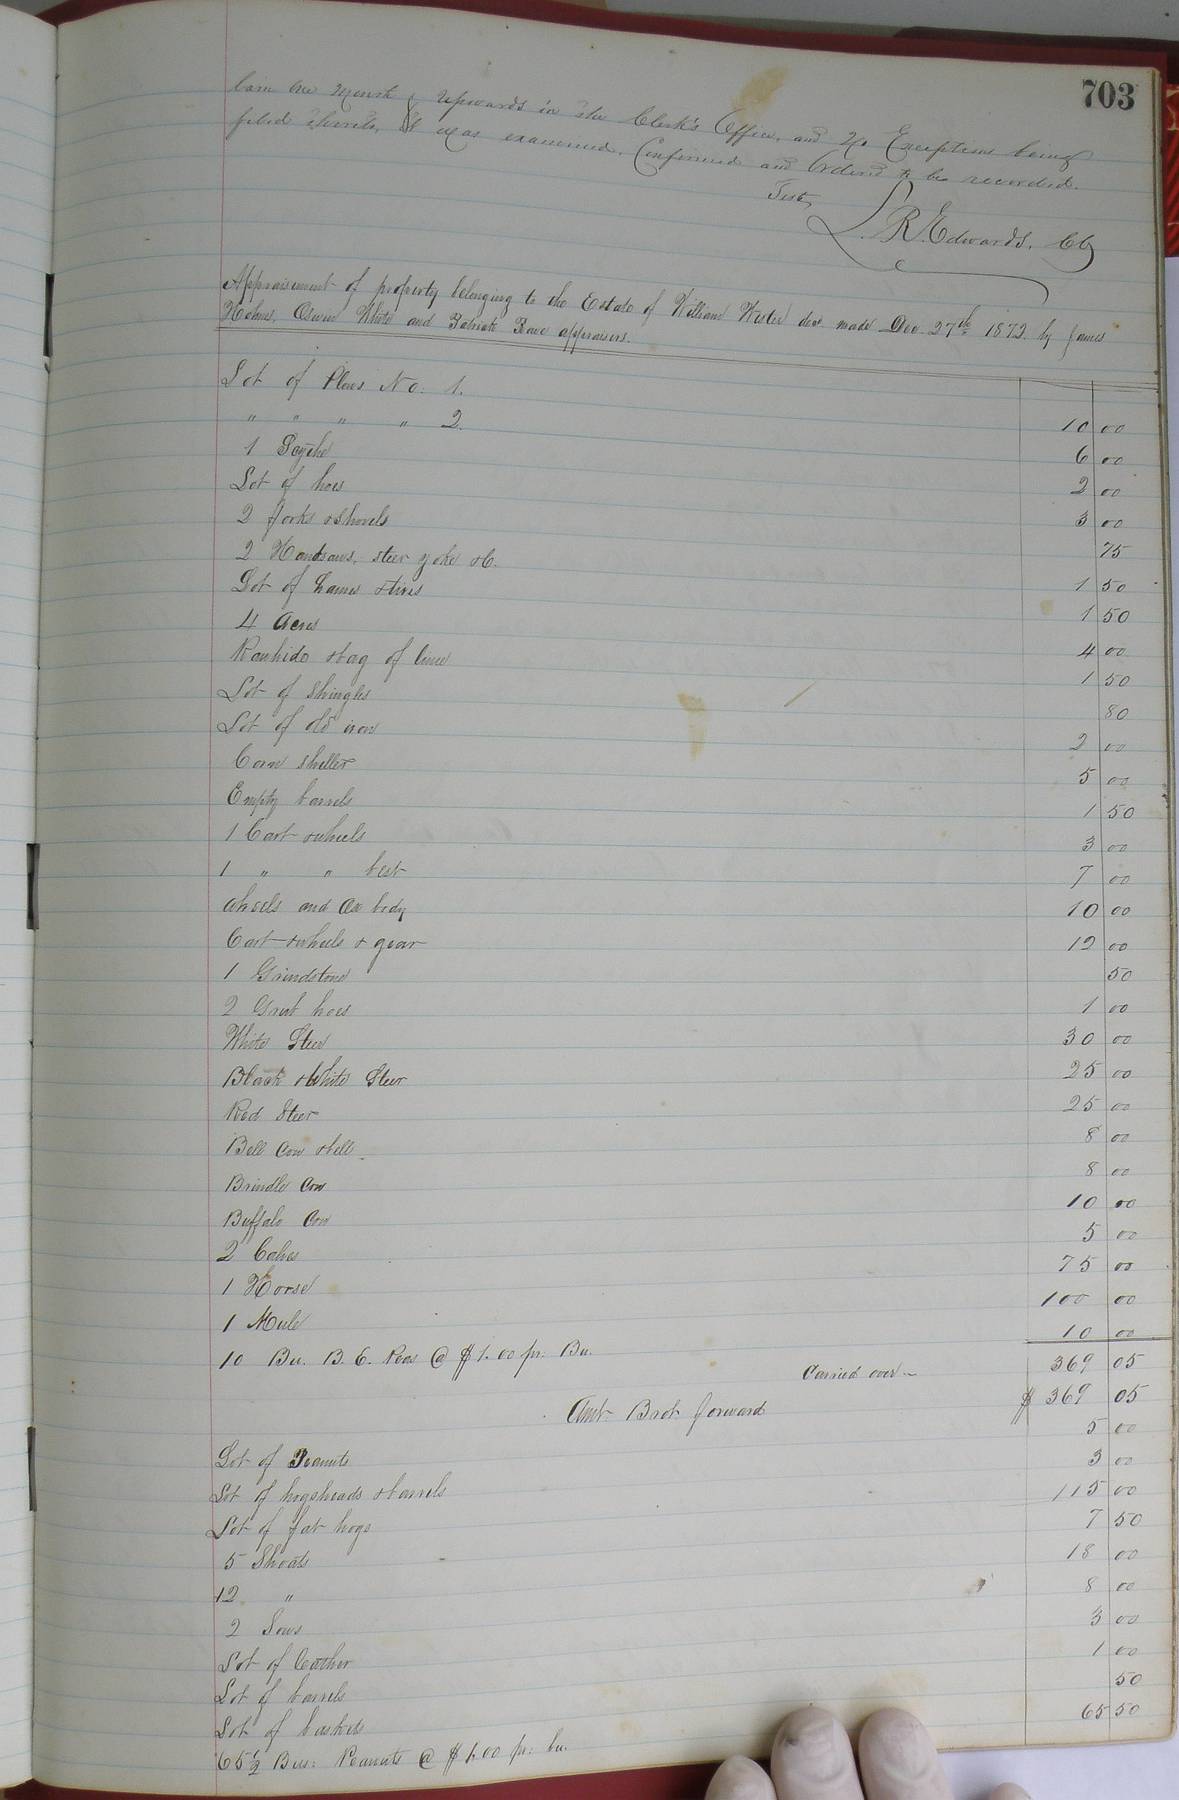 703
been one Month & Upwards in the Clerk's Office, and no Exceptions being
filed thereto, it was examined, Confirmed and Ordered to be recorded.
Teste,
L. R. Edwards, Clk
Appraisement of property belonging to the Estate of William dec'd made Dec. 27th 1872 by James
Holmes, White and appraisers.
Lot of Plows No. 1. 10 00
" " " " 2. 6 00
1 Scythe 2 00
Lot of hoes 3 00
2 forks & shovels 75
2 Handsaws, steer yoke &c. 1 50
Lot of hames & tires 1 50
4 Axes 4 00
Rawhide & bag of lime 1 50
Lot of shingles 80
Lot of old iron 2 00
Corn sheller 5 00
Empty barrels 1 50
1 Cart & wheels 3 00
1 " " best 7 00
wheels and Ox body 10 00
Cart & wheels & gear 12 00
1 Grindstone 50
2 Grub hoes 1 00
White Steer 30 00
Black & White Steer 25 00
Red Steer 25 00
Bell Cow & bell 8 00
Brindle Cow 8 00
Buffalo Cow 10 00
2 Calves 5 00
1 Horse 75 00
1 Mule 100 00
10 Bu. B. E. Peas @ $1.00 pr. Bu. 10 00
Carried over 369 05
Amt Brot forward $ 369 05
Lot of Peanuts 5 00
Lot of hogsheads & barrels 3 00
Lot of fat hogs 115 00
5 Shoats 7 50
12 " 18 00
2 Sows 8 00
Lot of leather 3 00
Lot of barrels 1 00
Lot of baskets 50
65 1/2 Bus: Peanuts @ $1.00 pr. bu. 65 50